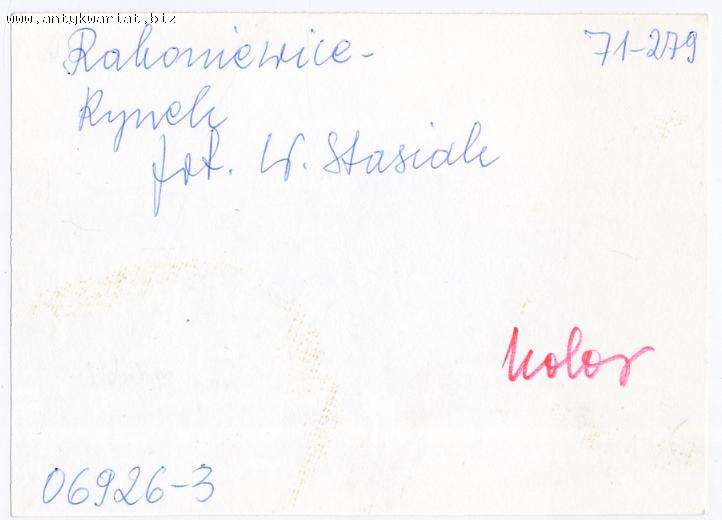 www.antykwariat.biz
Rakoniewice-
71-279
Rynek
fot. W. Stasiak
kolor
06926-3